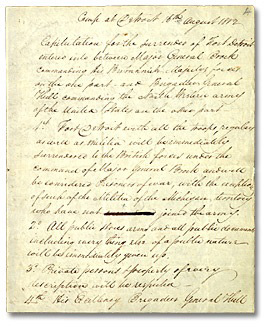 Camp at Detroit 16th August 1812
Capitulation for the surrender of Fort Detroit
entered into between Major General Brock
commanding His Britannick Majestys forces
on the one part, and Brigadier General
Hull commanding the North Western army
of the United States on the other part
1st Fort Detroit with all the troops, regulars
as well as militia will be immediately
surrendered to the British forces under the
command of Major General Brock and will
be considered Prisoners of war, with the exception
of such of the Militia of the Michigan territory
who have not joined the army.
2d All public stores arms and all public documents
including every thing else of a public nature
will be immediately given up.
3d Private persons & property of every
description will be respected
4th His Excellency Brigadier General Hull